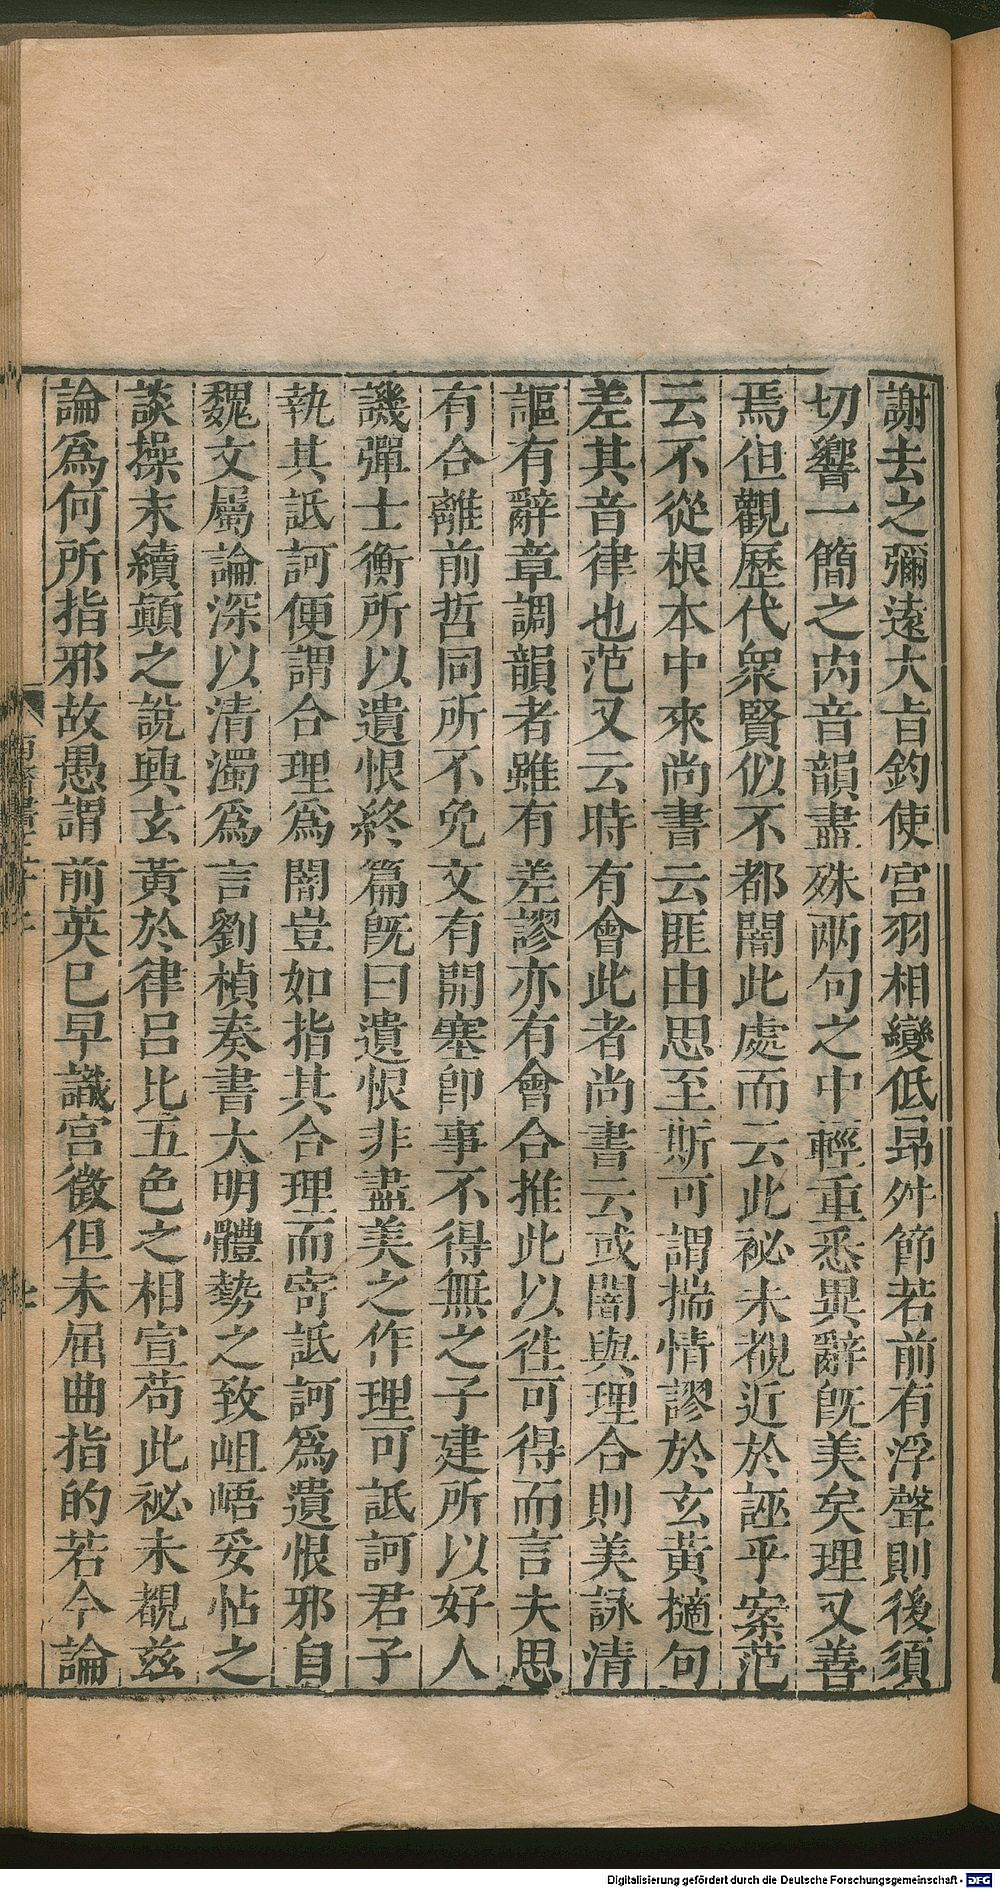 謝去之彌遠大旨鈞使宮羽相變低昂舛節若前有浮聲則後須
切響一簡之內音韻盡殊兩句之中輕重悉異辭既美矣理又善
焉但觀歷代衆賢似不都闇此處而云此祕未覩近於誣乎案范
云不從根本中來尚書云匪由思至斯可謂揣情謬於玄黃擿句
差其音律也范又云時有會此者尚書云或闇與理合則美詠清
謳有辭章調韻者雖有差謬亦有會合推此以徃可得而言夫思
有合離前哲同所不免文有開塞即事不得無之子建所以好人
譏彈士衡所以遺恨終篇既曰遺恨非盡美之作理可詆訶君子
執其詆訶便謂合理爲闇豈如指其合理而寄詆訶爲遺恨邪自
魏文屬論深以清濁爲言劉楨奏書大明體勢之致岨峿妥帖之
談操末續顛之說興玄黃於律呂比五色之相宣苟此祕未覩茲
論爲何所指邪故愚謂前英巳早識宮徵但未屈曲指的若今論
Digitalisierung gefördert durch die Deutsche Forschungsgemeinschaft - DFG